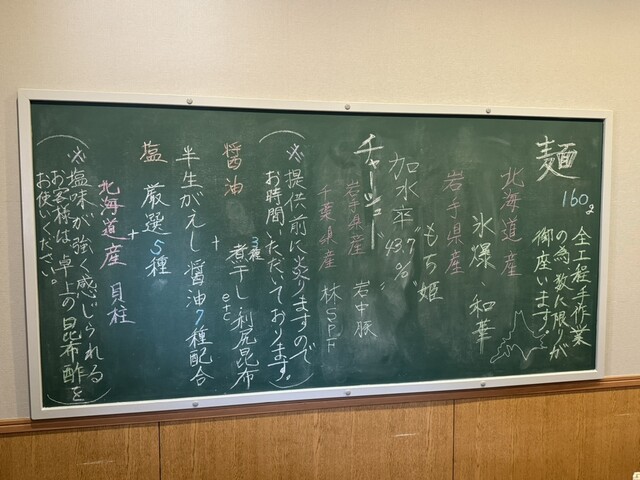 麺 160g
全工程手作業
の為、数に限りが
御座います。
北海道産
氷爆、和華
岩手県産
もち姫
加水率 "43.7%"
チャーシュー
岩手県産 岩中豚
千葉県産 林SPF
(※提供前に炙りますので
お時間いただいております。)
醤油 3種煮干し、利尻昆布etc
+
半生がえし 醤油7種配合
塩 厳選5種
+
北海道産 貝柱
(※塩味が強く感じられる
お客様は、卓上の昆布酢を
お使いください。)